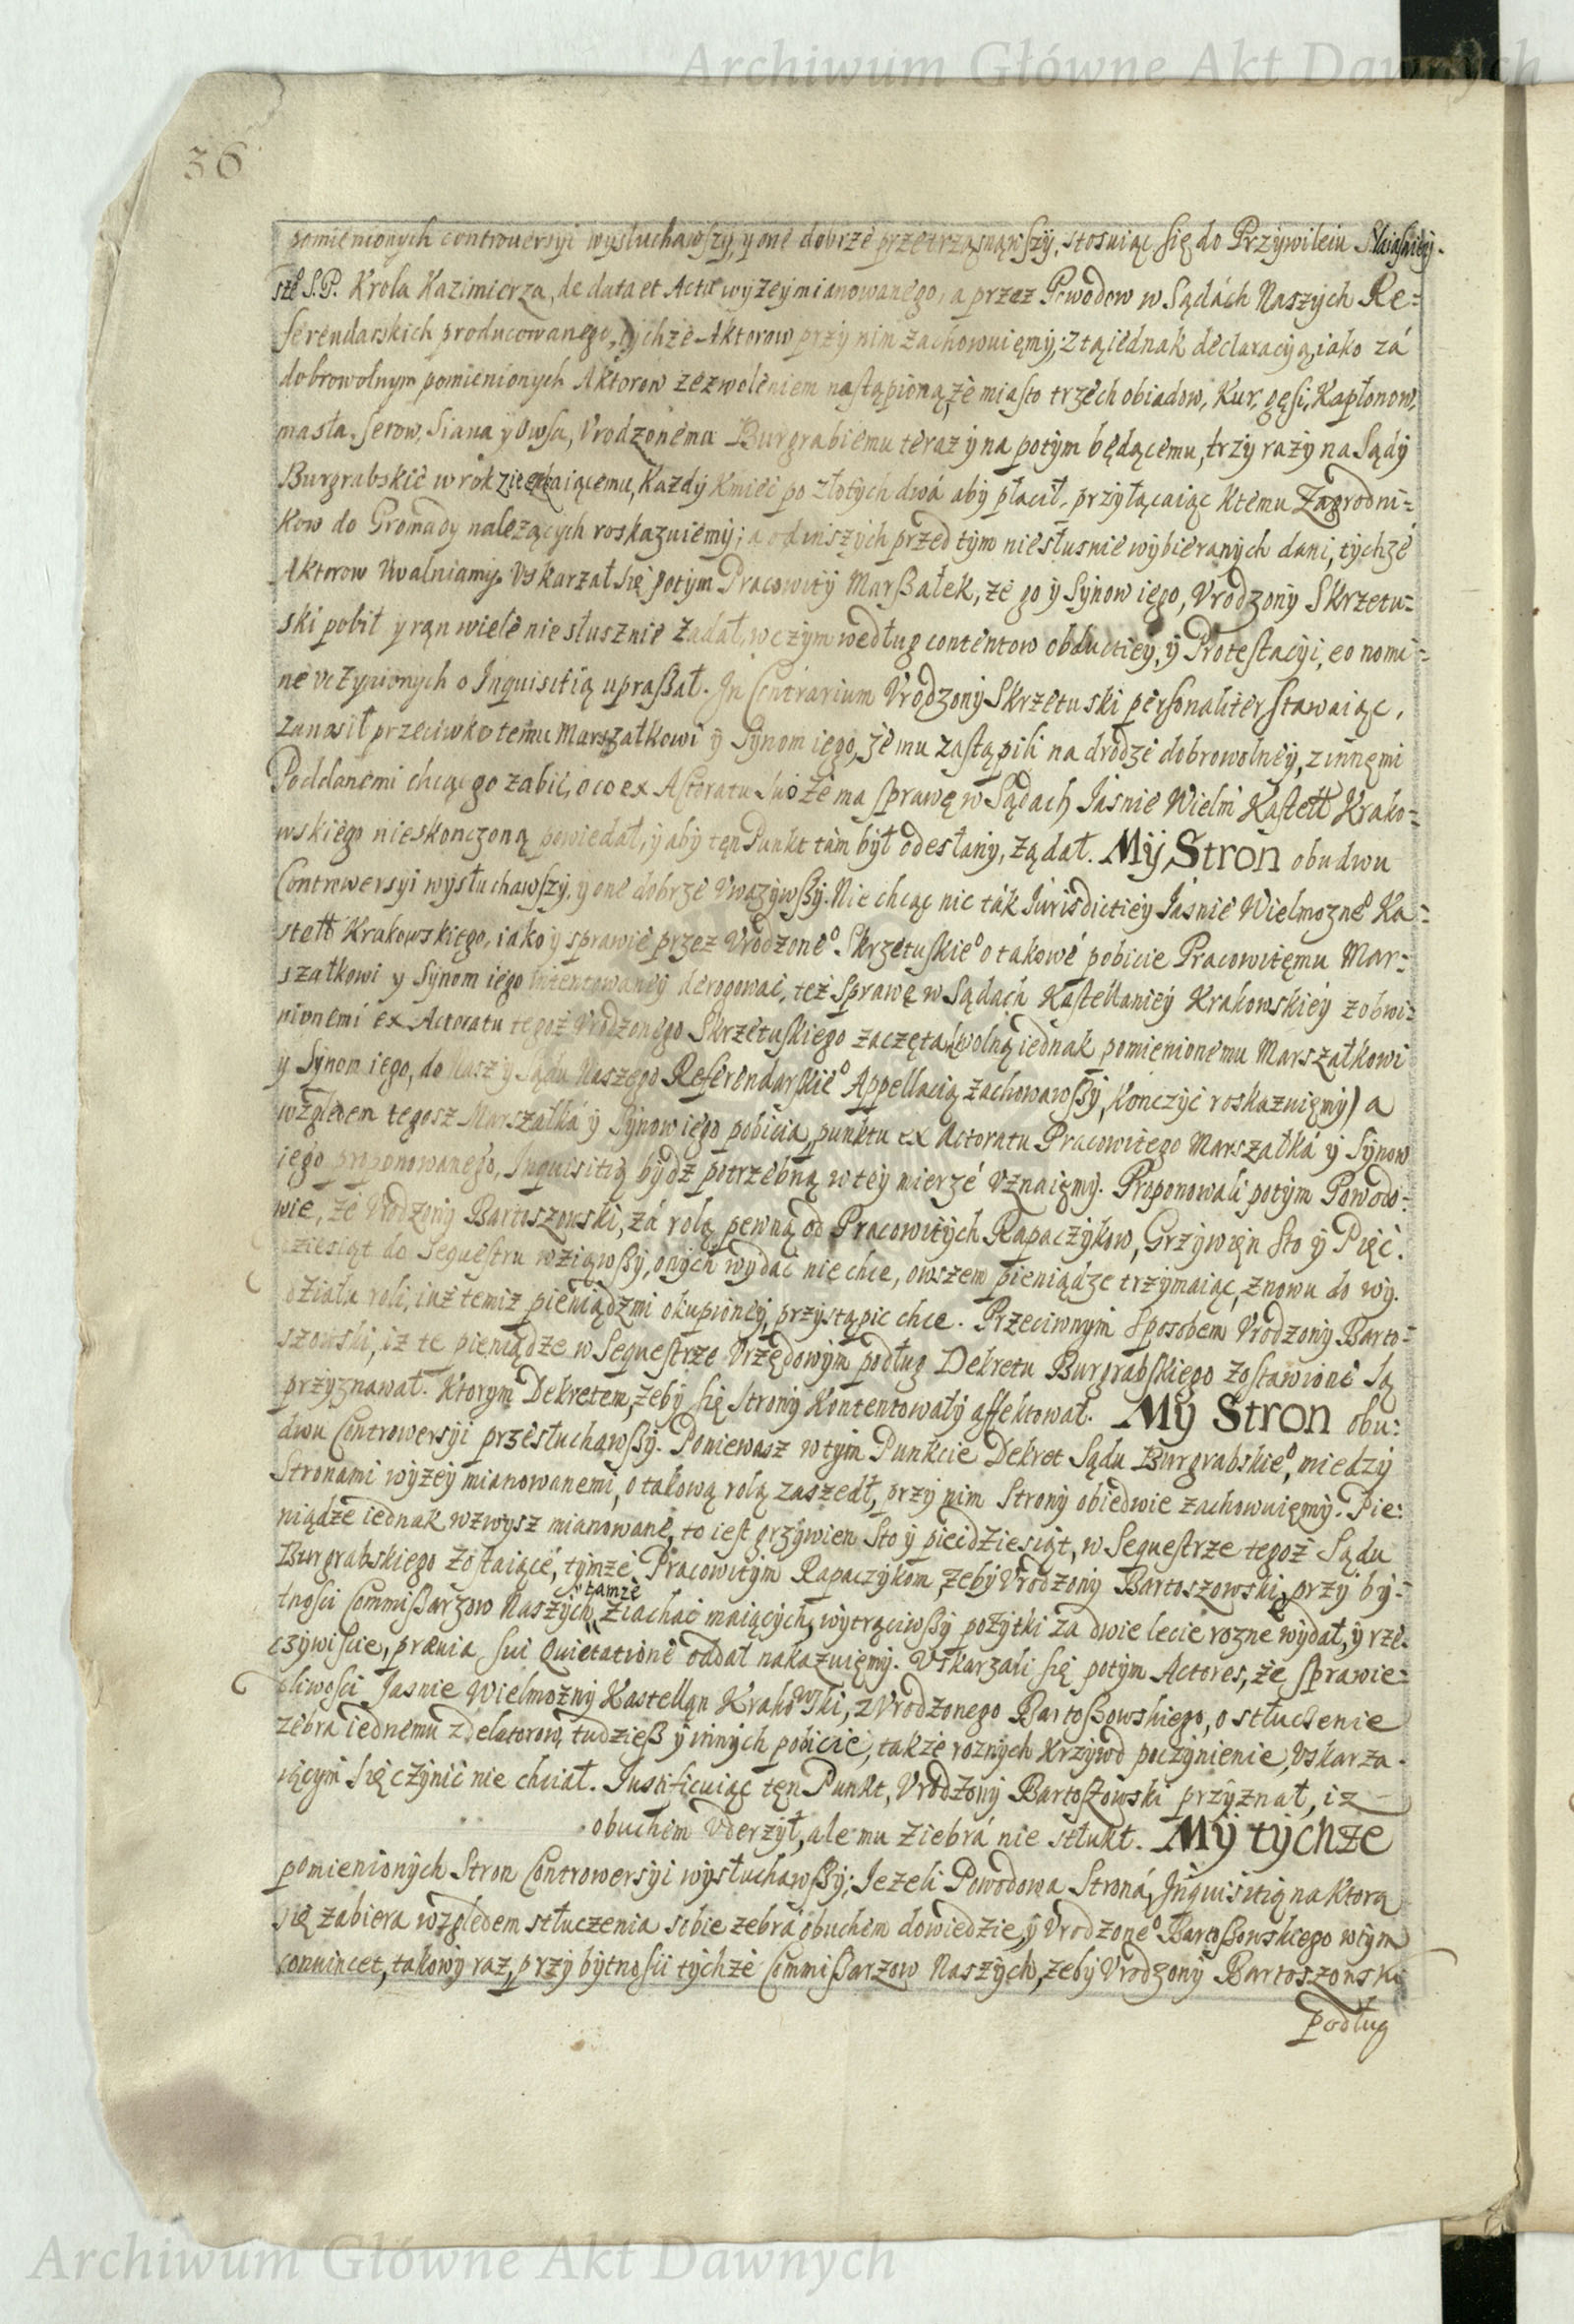 Archiwum Główne Akt Dawnych
36
pomienionych controuersyi wysłuchawszy, y one dobrze przetrząsnąwszy, stosuiąc się do Przywileiu Naiaśniey-
sze S.P. Krola Kazimierza, de data et Actu wyzey mianowanego, a przez Powodow w Sądách Naszych Re=
ferendarskich producowanego, tychże Aktorow przy nim zachowuięmy, z tą iednak declaracyą, iako zá
dobrowolnym pomienionych Aktorow zezwoleniem nastąpioną, że miasto trzech obiadow, Kur, gęsi, Kapłonow,
masła, serow, Siana y Owsa, Vrodzonemu Burgrabiemu teraz y na potym będącemu, trzy razy na Sądy
Burgrabskie w rok ziezdzaiącemu, Kazdy Kmieć po złotych dwá aby płacił, przyłączaiąc ktemu Zagrodni=
kow do Gromady nalezących roskazuiemy; a od inszych przed tym niesłusnie wybieranych dani, tychże
Aktorow Uwalniamy. Vskarzał się potym Pracowity Marszałek, ze go y Synow iego, Vrodzony Skrzetu=
ski pobił y rąn wiele niesłusznie Zadał, w czym według contentow obductiey, y Protestacyi, eo nomi=
ne vczynionych o Inquisitią upraszał. In Contrarium Vrodzony Skrzetuski personaliter stawaiąc,
zanosił przeciwko temu Marszałkowi y Synom iego, że mu zastąpili na drodze dobrowolney, z innęmi
Poddanemi chcąc go zabić, o co ex Actoratu swo że ma sprawę w Sądach Iasnie Wielm Kastell Krako=
wskiego nieskonczoną powiedał, y aby tęn Punkt tam był odesłany, żądał. My Stron obudwu
Controwersyi wysłuchawszy, y one dobrze Vwazywszy. Nie chcąc nic ták Iurisdictiey Iásnie Wielmożne° Ka=
stell Krakowskiego, iako y sprawie przez Vrodzone° Skrzetuskie° o takowe pobicie Pracowitęmu Mar=
szałkowi y Synom iego intentowaney derogować, tez Sprawę w Sądach Kastellaniey Krakowskiey z obwi=
nionemi ex Actoratu tegoż Vrodzonego Skrzetuskiego zaczętą (wolną iednak pomienionemu Marszałkowi
y Synom iego, do Naszy Sądu Naszego Referendarskie° Appellacią zachowawszy, Konczyć roskazuięmy) a
względem tegosz Marszałká y Synow iego pobicia, punktu ex Actoratu Pracowitego Marszałká y Synow
iego proponowanego, Inquisitią bydź potrzebną w tey mierzé Vznaięmy. Proponowali potym Powodo=
wie, że Vrodzony Bartoszowski, zá rolą pewną od Pracowitych Rapaczykow, Grzywięn sto y Pięć=
dziesiąt do Sequestru wziąwszy, onych wydać nie chce, owszem pieniądze trzymaiąc, znowu do wy=
działu roli, iuż temiz pieniądzmi okupioney, przystąpic chce. Przeciwnym sposobem Vrodzony Barto=
szowski, iz te pieniądze w Sequestrze Vrzędowym podług Dekretu Burgrabskiego zostawione są
przyznawał. Ktorym Dekretem, żeby się Strony Kontentowały affektował. My Stron obu=
dwu Controwersyi przesłuchawszy. Poniewasz w tym Punkcie Dekret Sądu Burgrabskie°, miedzy
Stronami wyzey mianowanemi, o takową rolą zaszedł, przy nim Strony obiedwie zachowuięmy. Pie=
niądze iednak wzwysz mianowane, to iest grzywien sto y piecdziesiąt, w Sequestrze tegoż Sądu
Burgrabskiego zostaiące, tymże Pracowitym Rapaczykom, żeby Vrodzony Bartoszowski, przy by=
tamże
tności Commissarzow Naszych, ziachać maiących, wytrąciwszy pożytki za dwie lecie rozne wydał, y rze=
czywiscie, prævia sui Quietatione oddał nakazuięmy. Vskarzali się potym Actores, że sprawie=
dliwości Jasnie Wielmożny Kastellan Krakowski, z Vrodzonego Bartoszowskiego, o stłuczenie
zebra iednemu z delatorow, tudziesz y innych pobicie, także roznych Krzywd poczynienie, Vskarza=
iącym się czynić nie chciał. Iustificuiąc tęn Punkt, Vrodzony Bartoszowski przyznał, iz
obuchem Vderzył, ale mu Ziebrá nie stłukł. My tychże
pomienionych Stron Controwersyi wysłuchawszy; Iezeli Powodowa Stroná, Inquisitią na ktorą
się zabiera względem stłuczenia sobie zebrá obuchem dowiedzie, y Vrodzone° Bartoszowskiego w tym
conuincet, takowy raz, przy bytności tychże Commissarzow Naszych, zeby Vrodzony Bartoszowski
podług
Archiwum Główne Akt Dawnych